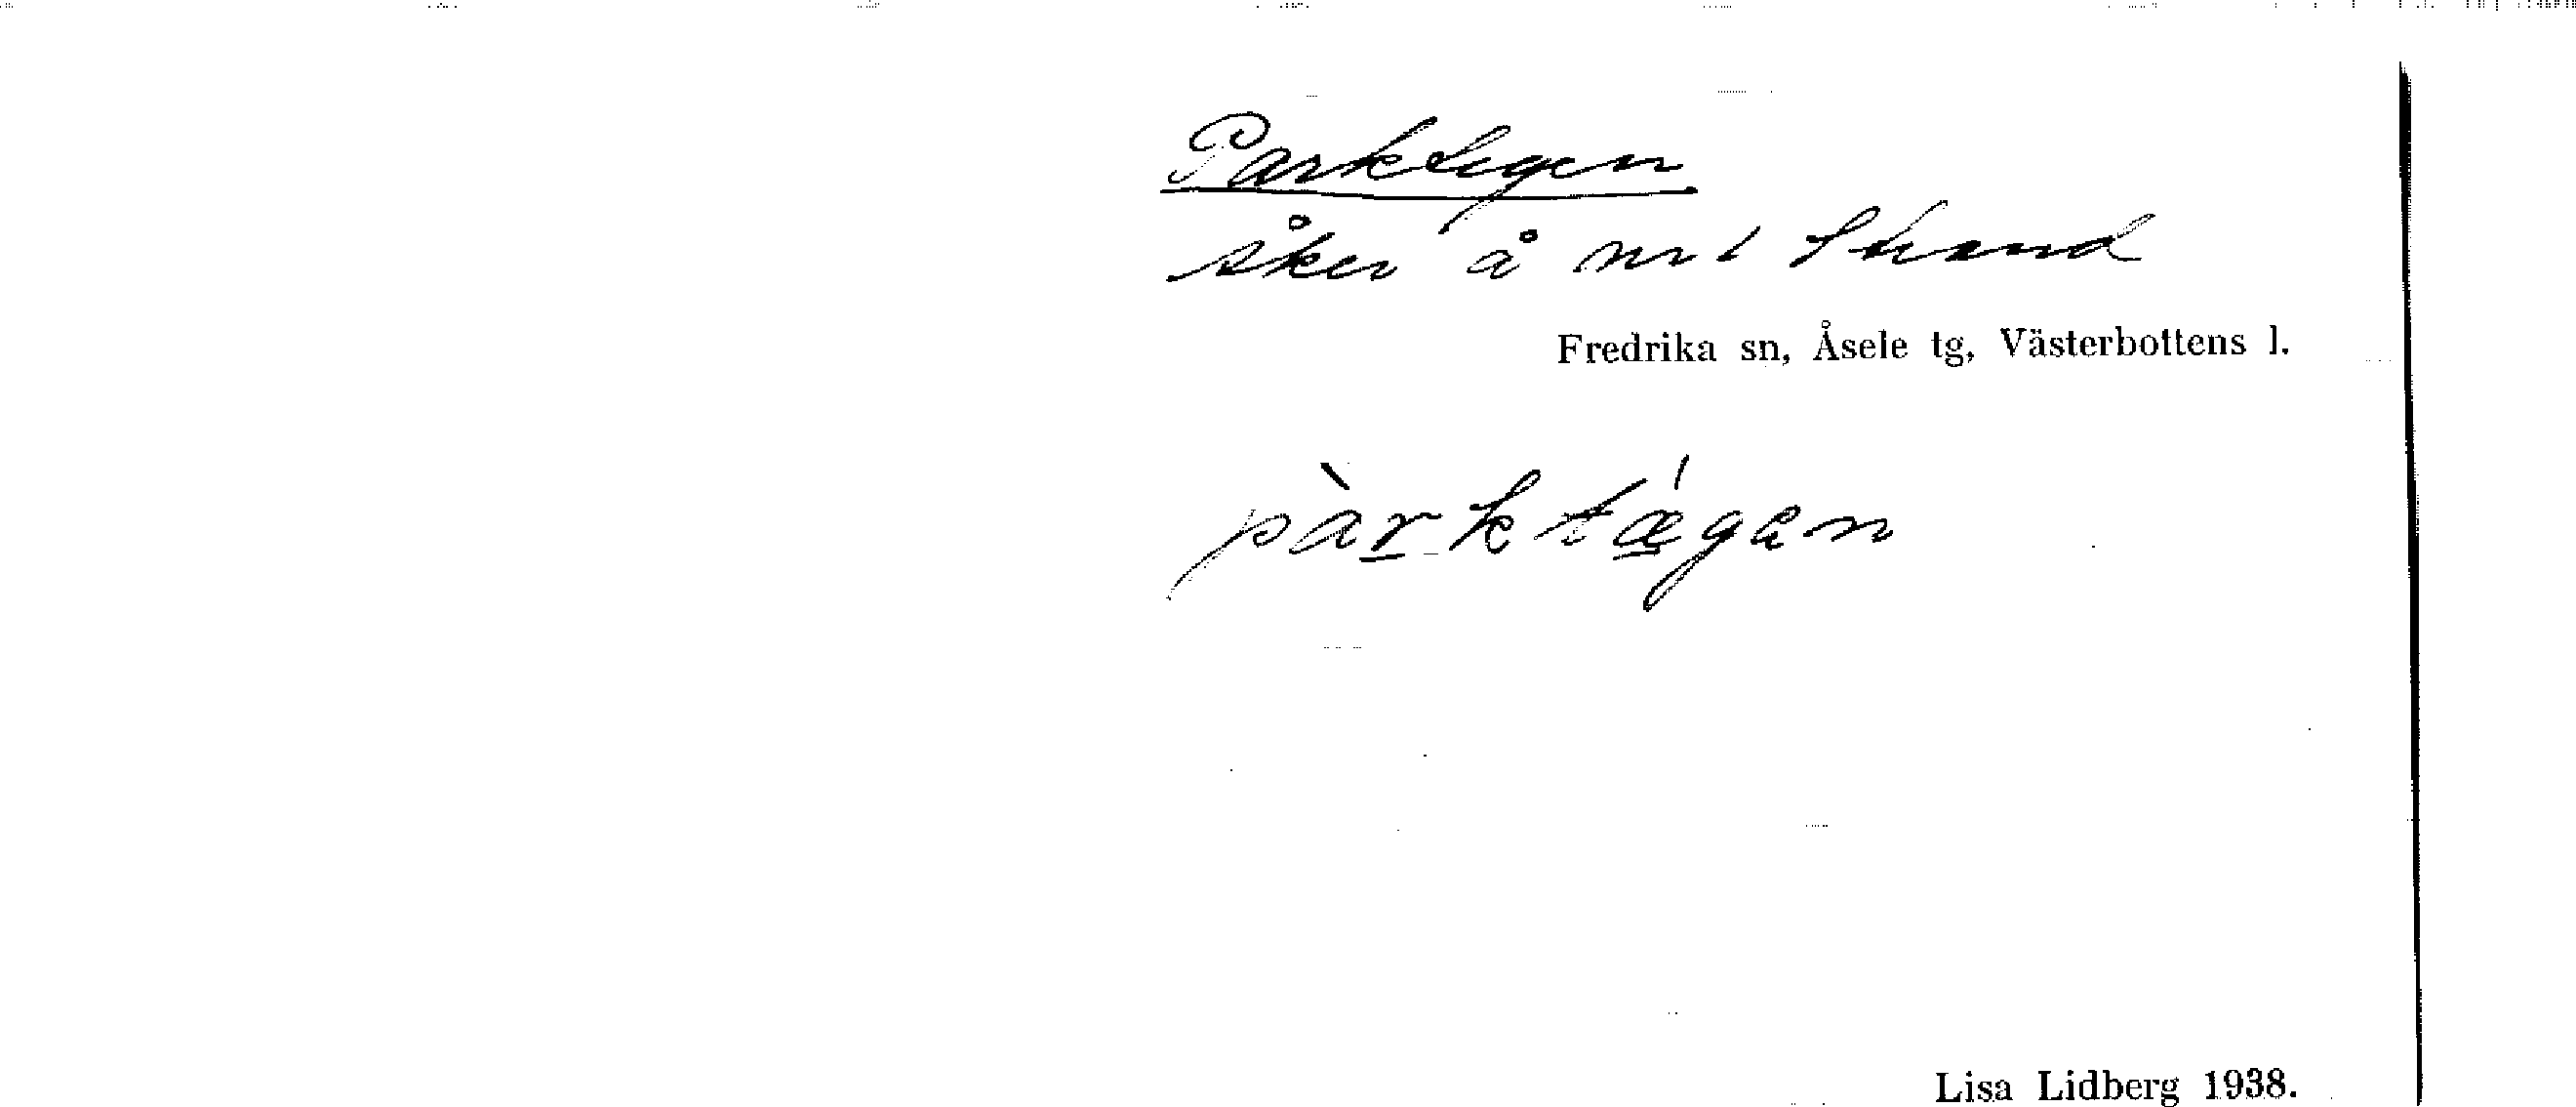 Parktegen
åker å nr 1 Strand
Fredrika sn, Åsele tg, Västerbottens l.
pàrktǽgan
Lisa Lidberg 1938.